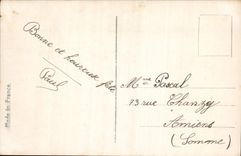 Bonne et heureuse fête
Paul
Mme Pascal
93 rue Chanzy
Amiens
(Somme)
Made in France